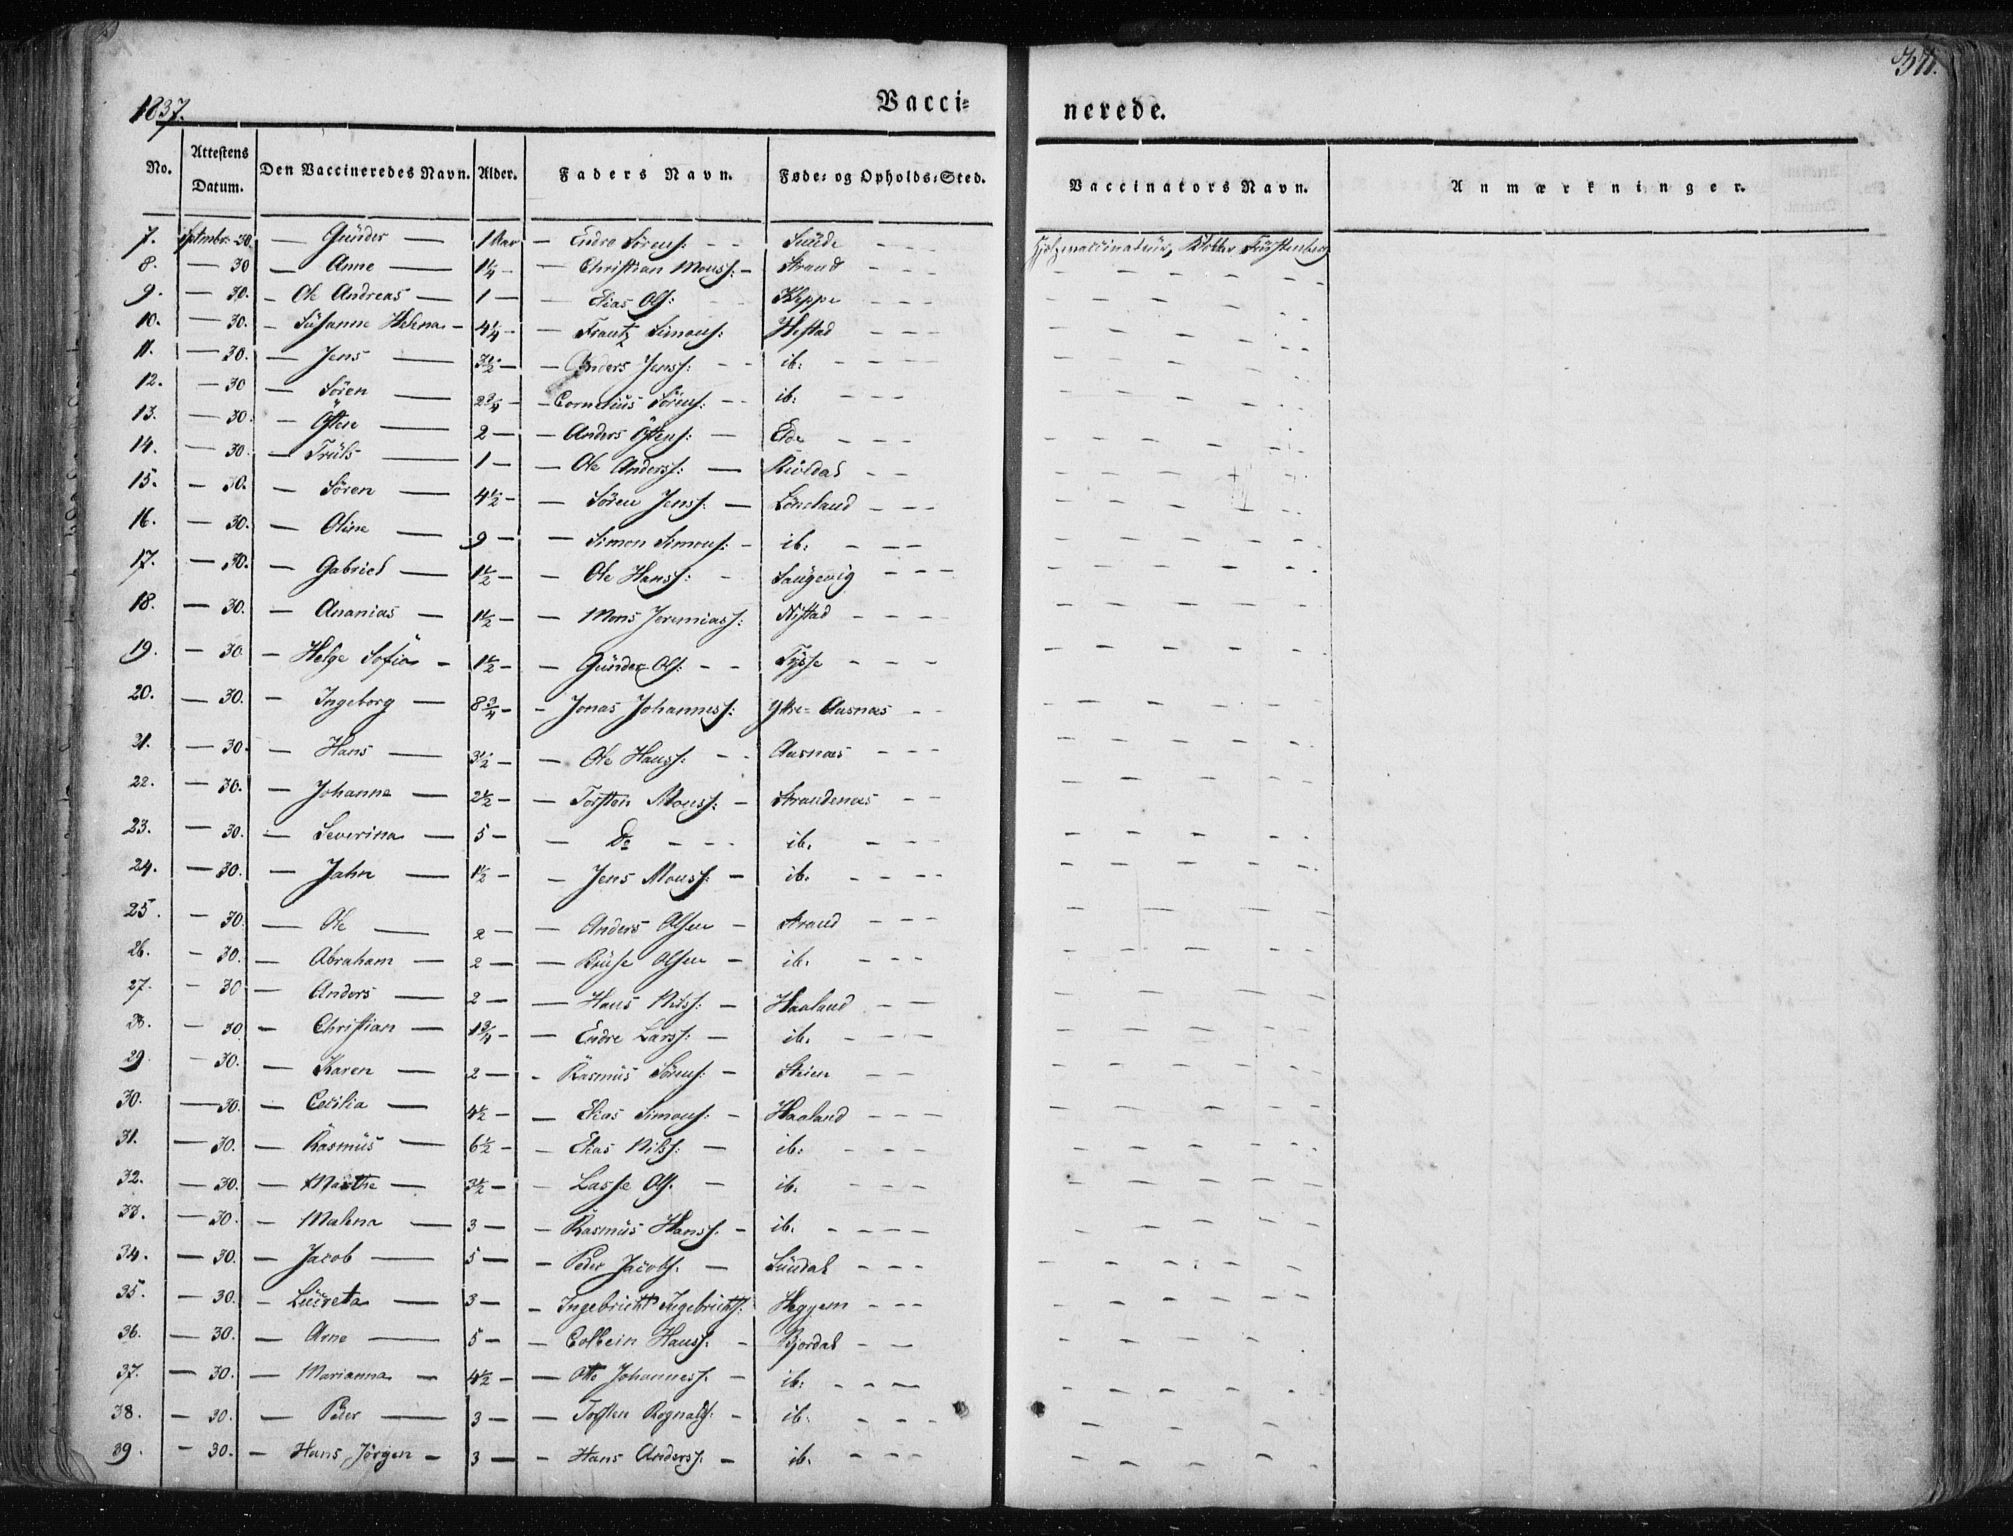 1837.
Vacci-
nerede.
341.
No. Attestens Datum. Den Vaccineredes Navn. Alder. Faders Navn. Føde- og Opholds-Sted. Vaccinators Navn. Anmærkninger.
7. Septmbr: 30. — Gunder 1 Aar — Endre Sörens: - - Sunde - - -
8. — 30 — Anne — 1 1/4 — — Christian Monss: - Strand - - -
9. — 30. - Ole Andreas — 1 — — Elias Ols: Kleppe - - -
10. — 30. - Susanne Helena - 4 1/4 — — Frantz Simons: Hestad - - -
11. — 30. — Jens — 3 1/2 — — Anders Jenss: - - ib: - - - -
12. — 30 — Sören — 2 3/4 - — Cornelius Sörens: - - ib: - - -
13. — 30. — Östen — 2 — — Anders Östens: — Eide - - -
14. — 30. — Truls — 1 — — Ole Anderss: — - -
15. - 30. — Sören — 4 1/2 — — Sören Jenss: — Löneland - - -
16. — 30. — Oline — 9 — — Simon Simons: - ib: - - -
17. — 30. — Gabriel — 1 1/2 — — Ole Hanss: - - - -
18. — 30. — Ananias — 1 1/2 — — Mons Jeremiass: Nistad - - -
19. — 30 — Helge Sofia - 1 1/2 — — Gunder Ols: - - Tysse - - -
20. — 30. — Ingeborg — 8 3/4 — - Jonas Johanness: Yttre- Ausnæs - -
21. — 30. — Hans — 3 1/2 — — Ole Hanss: - - Ausnæs - - -
22. — 30. — Johanne — 2 1/2 — — Torsten Monss: - Strandenæs - -
23. — 30. — Severina — 5 — — Do - - - ib. - - -
24. — 30. — Jahn — 1 1/2 — — Jens Monss: - ib. - - - -
25. — 30. — Ole — 2 — — Anders Olsen - Strand - - -
26. - 30. — Abraham — 2 — — Kruse Olsen - ib. - - -
27. - 30 — Anders — 2 — — Hans Nilss: - Haaland - -
28. - 30 — Christian — 1 3/4 — — Endre Larss: - ib. - - - -
29. — 30. — Karen — 2 — - Rasmus Sörens: - Steien - -
30. — 30. — Cecilia — 4 1/2 — — Elias Simons: - Haaland - - -
31. — 30. — Rasmus — 6 1/2 — — Elias Nilss: — ib: - - - -
32. — 30. — Marthe — 3 1/2 — - Lasse Ols. — ib. - - - -
33. — 30. — Malena — 3 — — Rasmus Hanss. - ib. - - - -
34. — 30. — Jacob — 5 — — Peder Jacobs. — Sundal - - -
35. — 30. — Lucreta — 3 — - Ingebricht Ingebrichts: - - -
36. — 30. — Arne — 5 — — Colbein Hanss. - Bjordal - -
37. — 30. — Marianna — 4 1/2 — — Ole Johanness. — ib: - - - -
38. — 30. — Peder — 3 — — Torsten Rognalds. - ib. - - - -
39. — 30. — Hans Jörgen - 3 — — Hans Anderss. - ib. - - - -